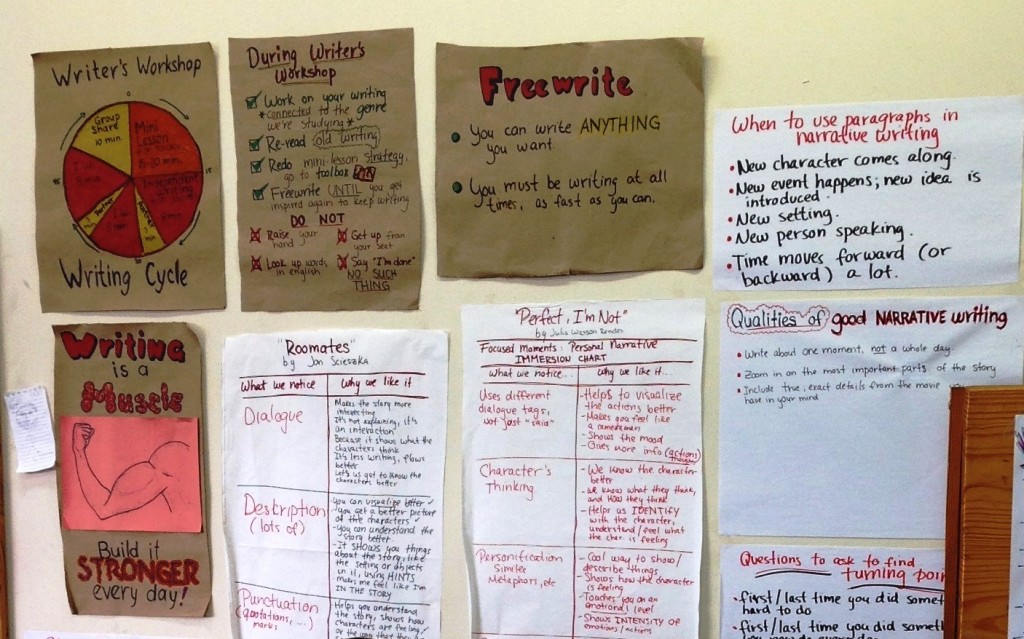 Writer's Workshop
Group
Share
10 min.
Mini
Lesson
Writing Cycle
During Writer's
Workshop
Work on your writing
*connected to the genre
we're studying*
Re-read old writing
Redo mini-lesson strategy,
go to toolbox
Freewrite UNTIL you get
inspired again to keep writing
DO NOT
Raise your
hand
Get up from
your seat
Look up words
in english
Say "I'm done"
NO SUCH
THING
Freewrite
You can write ANYTHING
you want.
You must be writing at all
times, as fast as you can.
When to use paragraphs in
narrative writing
New character comes along.
New event happens; new idea is
introduced.
New setting.
New person speaking.
Time moves forward (or
backward) a lot.
Writing
is a
Muscle
Build it
STRONGER
every day!
"Roomates"
by Jon Scieszka
What we notice
Why we like it
Dialogue
Makes the story more
interesting
It's not explaining, it's
an interaction
Because it shows what the
characters think
It's less writing, flows
better
Let's us get to know the
characters better
Description
(lots of)
-you can visualize better
-you get a better picture
of the characters
-you can understand the
story better
-It SHOWS you things
about the story, like
the setting or objects
in it, using HINTS
makes me feel like I'm
IN THE STORY
Punctuation
(quotations, ...)
marks
Helps you understand
the story, shows how
characters are feeling
"Perfect, I'm Not"
by Julia
Focused Moments: Personal Narrative
IMMERSION CHART
What we notice...
Why we like it...
Uses different
dialogue tags,
not just "said"
-Helps to visualize
the actions better
-Makes you feel like
a
-Shows the mood
-Gives more info (actions)
Character's
Thinking
-We know the character
better
-We know what they think,
and HOW they think
-Helps us IDENTIFY
with the character,
understand/feel what
the char. is feeling
Personification
Simile
Metaphor, etc
-Cool way to show/
describe things
-Shows how the character
is feeling
-Touches you on an
emotional level
-Shows INTENSITY of
emotions/actions
Qualities of good NARRATIVE writing
Write about one moment, not a whole day.
Zoom in on the most important parts of the story
Include true, exact details from the movie you
have in your mind
Questions to ask to find
turning poin
first/last time you did somet
hard to do
first/last time you did somet